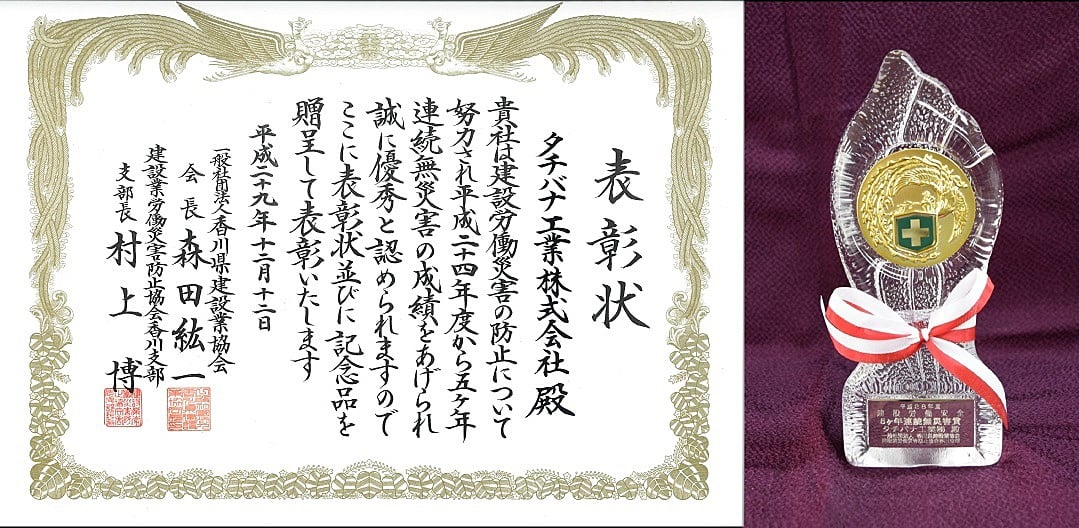 表彰状
タチバナ工業株式会社殿
貴社は建設労働災害の防止について
努力され平成二十四年度から五ヶ年
連続無災害の成績をあげられ
誠に優秀と認められますので
ここに表彰状並びに記念品を
贈呈して表彰いたします
平成二十九年十二月十二日
一般社団法人香川県建設業協会
会長 森田紘一
建設業労働災害防止協会香川支部
支部長 村上博
平成28年度
建設労働安全
5ヶ年連続無災害賞
タチバナ工業㈱ 殿